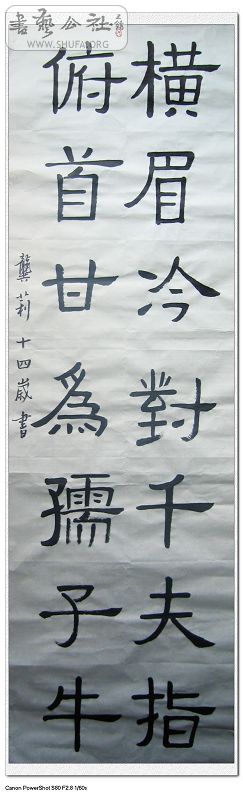 書藝公社
WWW.SHUFA.ORG
横眉冷對千夫指
俯首甘爲孺子牛
龔莉十四歲書
Canon PowerShot S80 F2.8 1/60s